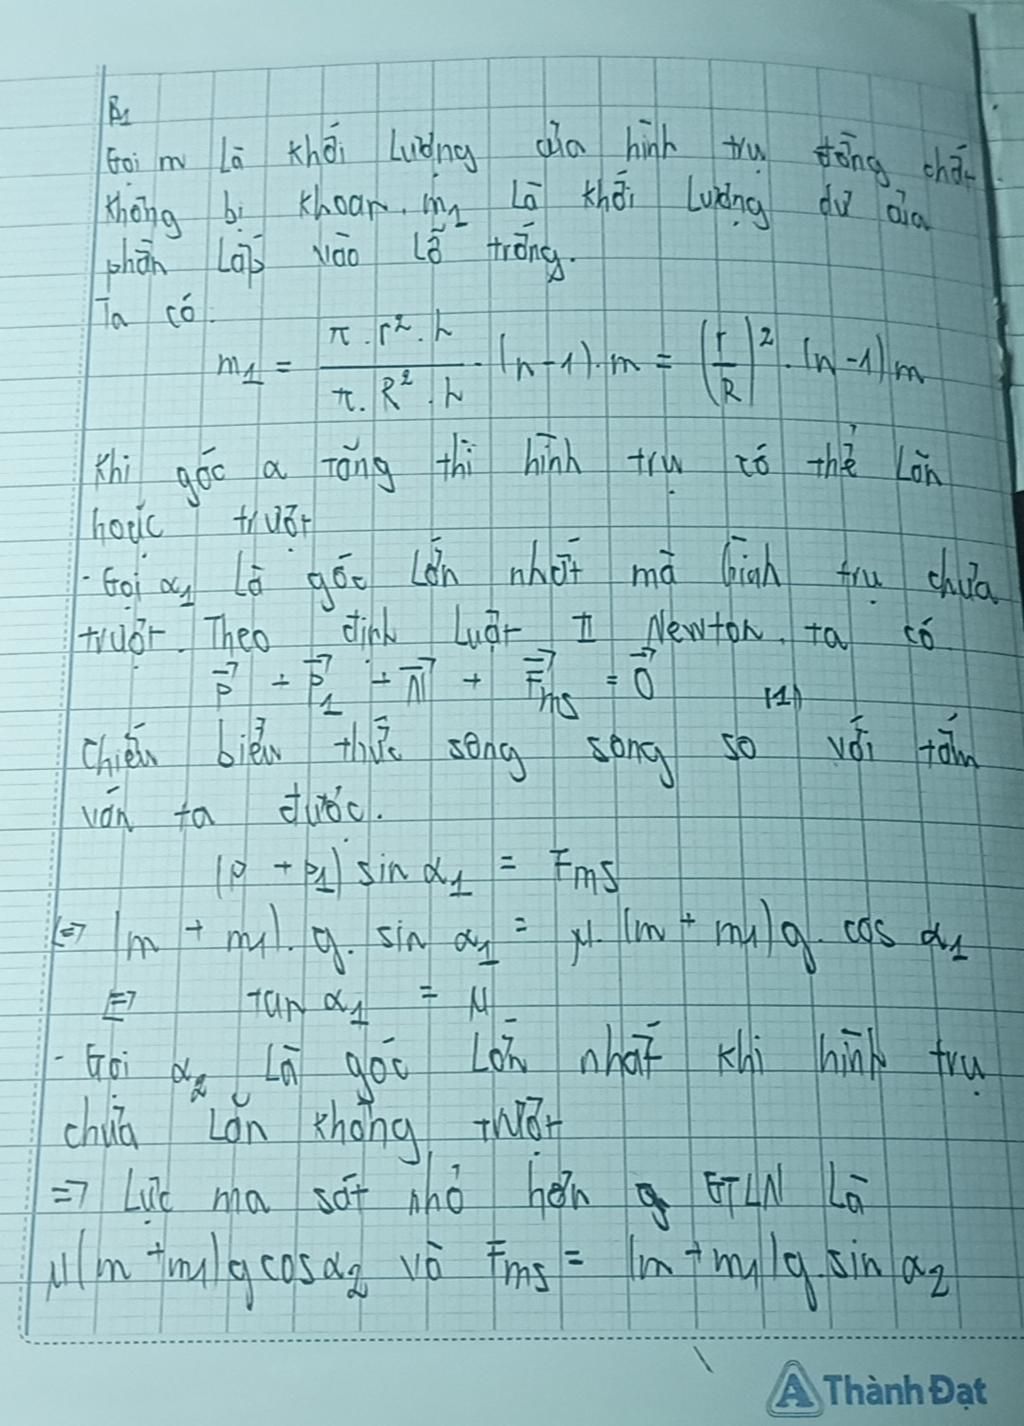 B1
Gọi m là khối lượng của hình trụ đồng chất
không bị khoan. m1 là khối lượng dư của
phần lắp vào lỗ trống.
Ta có:
m1 = (π.r².h)/(π.R².h) . (n-1).m = (r/R)².(n-1)m
Khi góc α tăng thì hình trụ có thể lăn
hoặc trượt
- Gọi α1 là góc lớn nhất mà hình trụ chưa
trượt. Theo định luật II Newton, ta có
P⃗ + P⃗1 + N⃗ + F⃗ms = 0⃗ (1)
Chiếu biểu thức song song so với tấm
ván ta được.
(P + P1) sin α1 = Fms
<=> (m + m1).g. sin α1 = μ.(m + m1)g. cos α1
<=> tan α1 = μ
- Gọi α2 là góc lớn nhất khi hình trụ
chưa lăn không trượt
=> Lực ma sát nhỏ hơn GTLN là
μ(m + m1)g cos α2 và Fms = (m + m1)g.sin α2
Thành Đạt